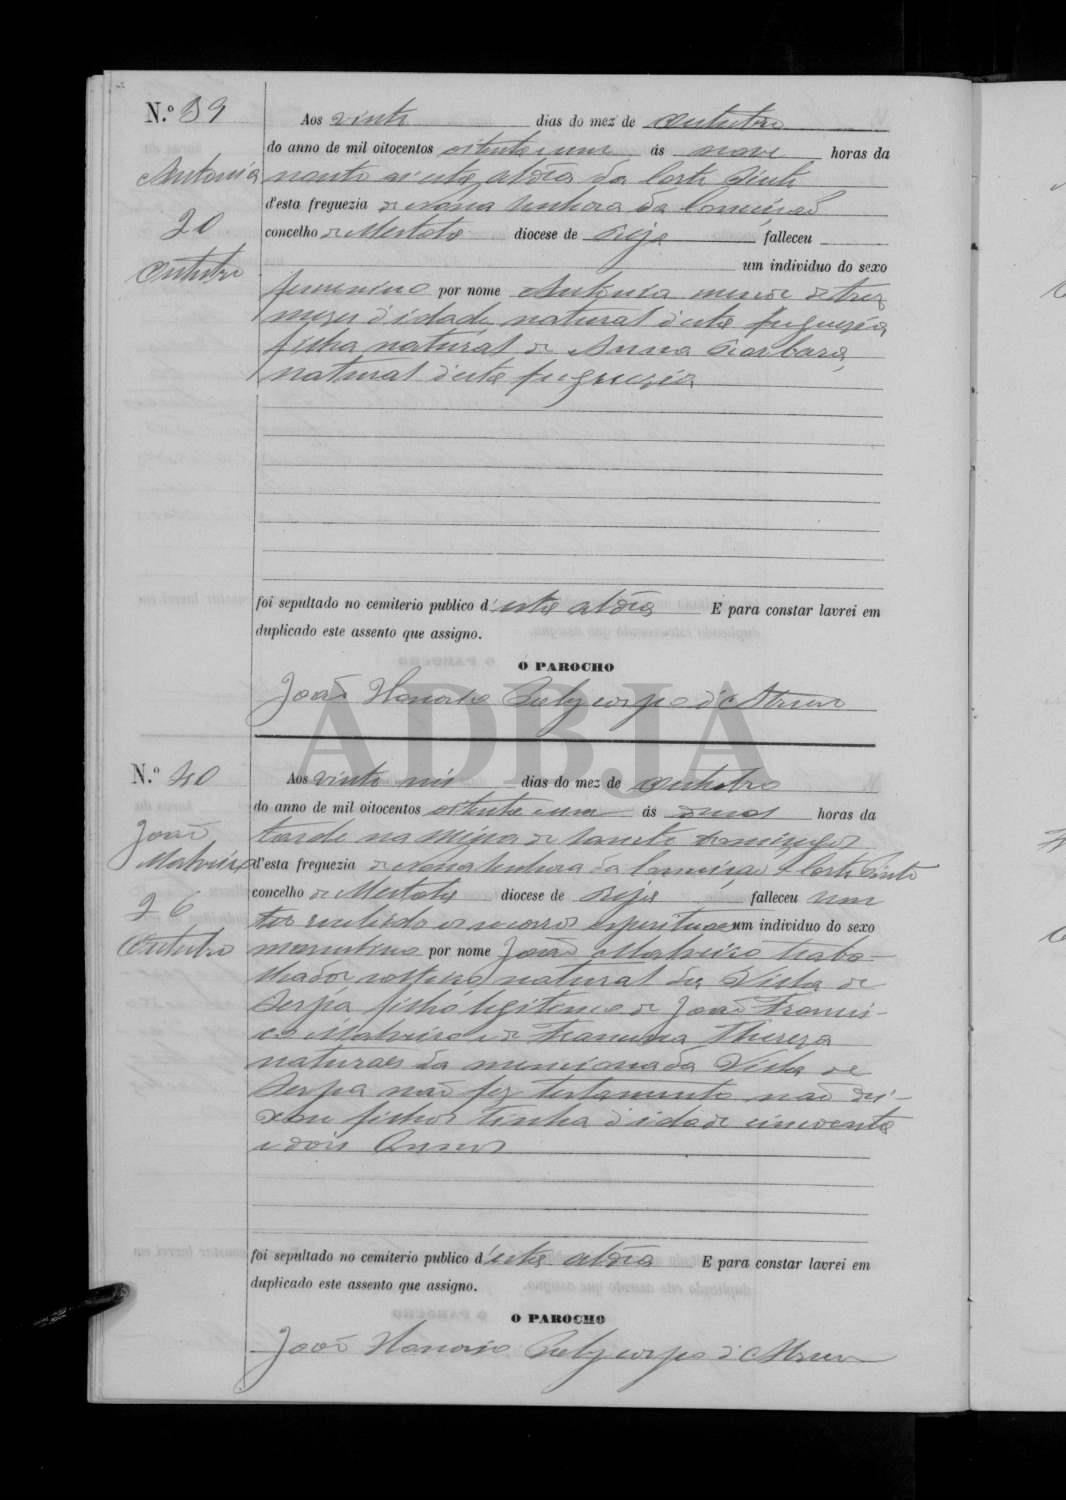 N.º 39
Aos vinte dias do mez de Outubro
do anno de mil oitocentos oitenta e um ás nove horas da
Antonia
noute n'esta aldeia da Corte Pinto
d'esta freguezia de Nossa Senhora da Conceição
20
concelho de Mertola diocese de Beja falleceu
Outubro
um individuo do sexo
femenino por nome Antonia menor de trez
mezes d'idade natural d'esta freguezia
filha natural de Anna Barbara,
natural d'esta freguezia
foi sepultado no cemiterio publico d'esta aldeia E para constar lavrei em
duplicado este assento que assigno.
O PAROCHO
João Honorio Polycarpo d'
ADBJA
N.º 40
Aos vinte seis dias do mez de Outubro
do anno de mil oitocentos oitenta e um ás duas horas da
João
tarde na Mina de Sancto Domingos
Malveiro
d'esta freguezia de Nossa Senhora da Conceição de Corte Pinto
26
concelho de Mertola diocese de Beja falleceu sem
Outubro
ter recebido os socorros espirituaes um individuo do sexo
masculino por nome João Malveiro traba-
lhador solteiro natural da Villa de
Serpa filho legitimo de João Francis-
co Malveiro e de Francisca Thereza
naturaes da mencionada Villa de
Serpa não fez testamento não dei-
xou filhos tinha d'idade cincoenta
e dois annos
foi sepultado no cemiterio publico d'esta aldeia E para constar lavrei em
duplicado este assento que assigno.
O PAROCHO
João Honorio Polycarpo d'